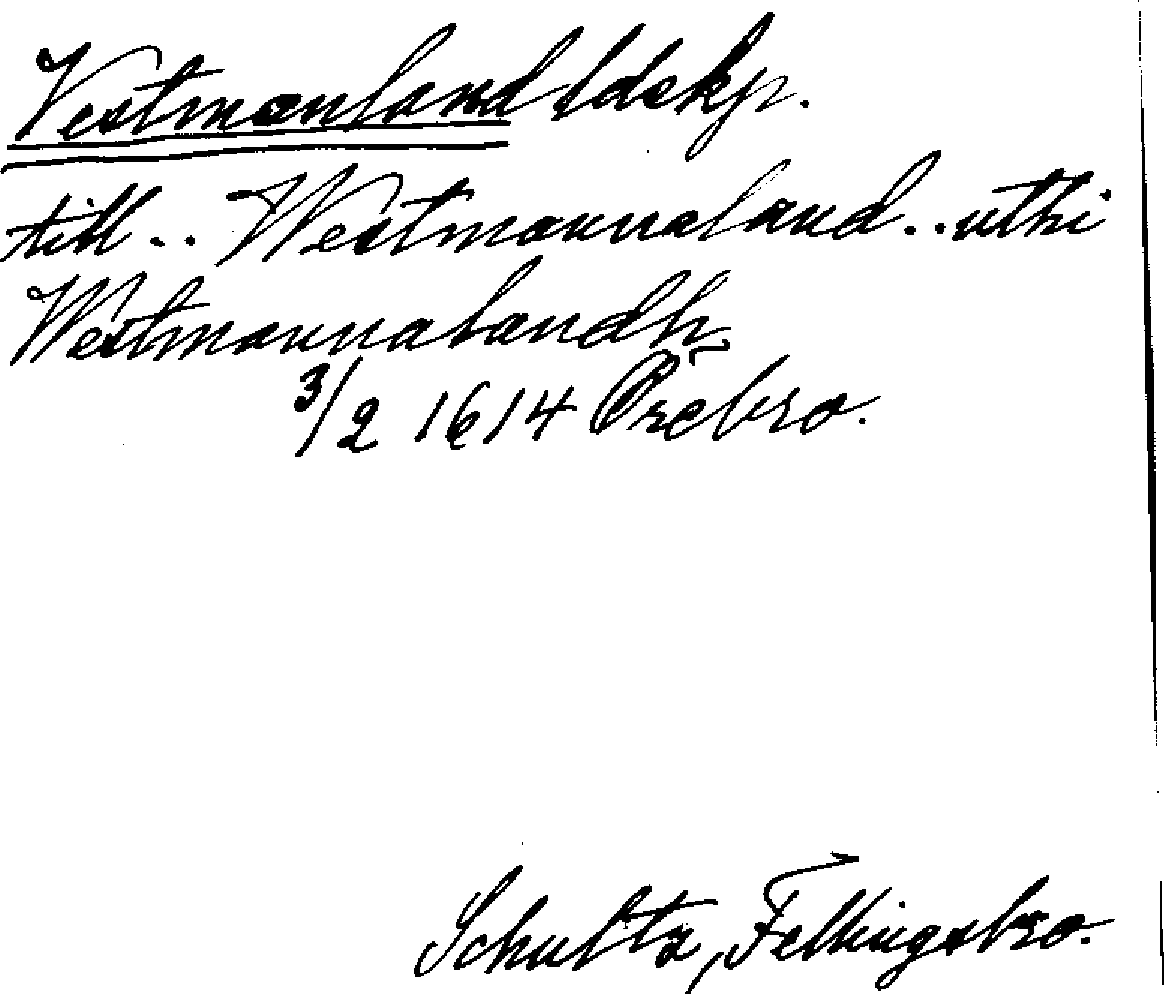 Vestmanland ldskp.
till .. Westmannaland .. uthi
Westmannalandh
3/2 1614 Örebro.
Schultz, Fellingsbro.